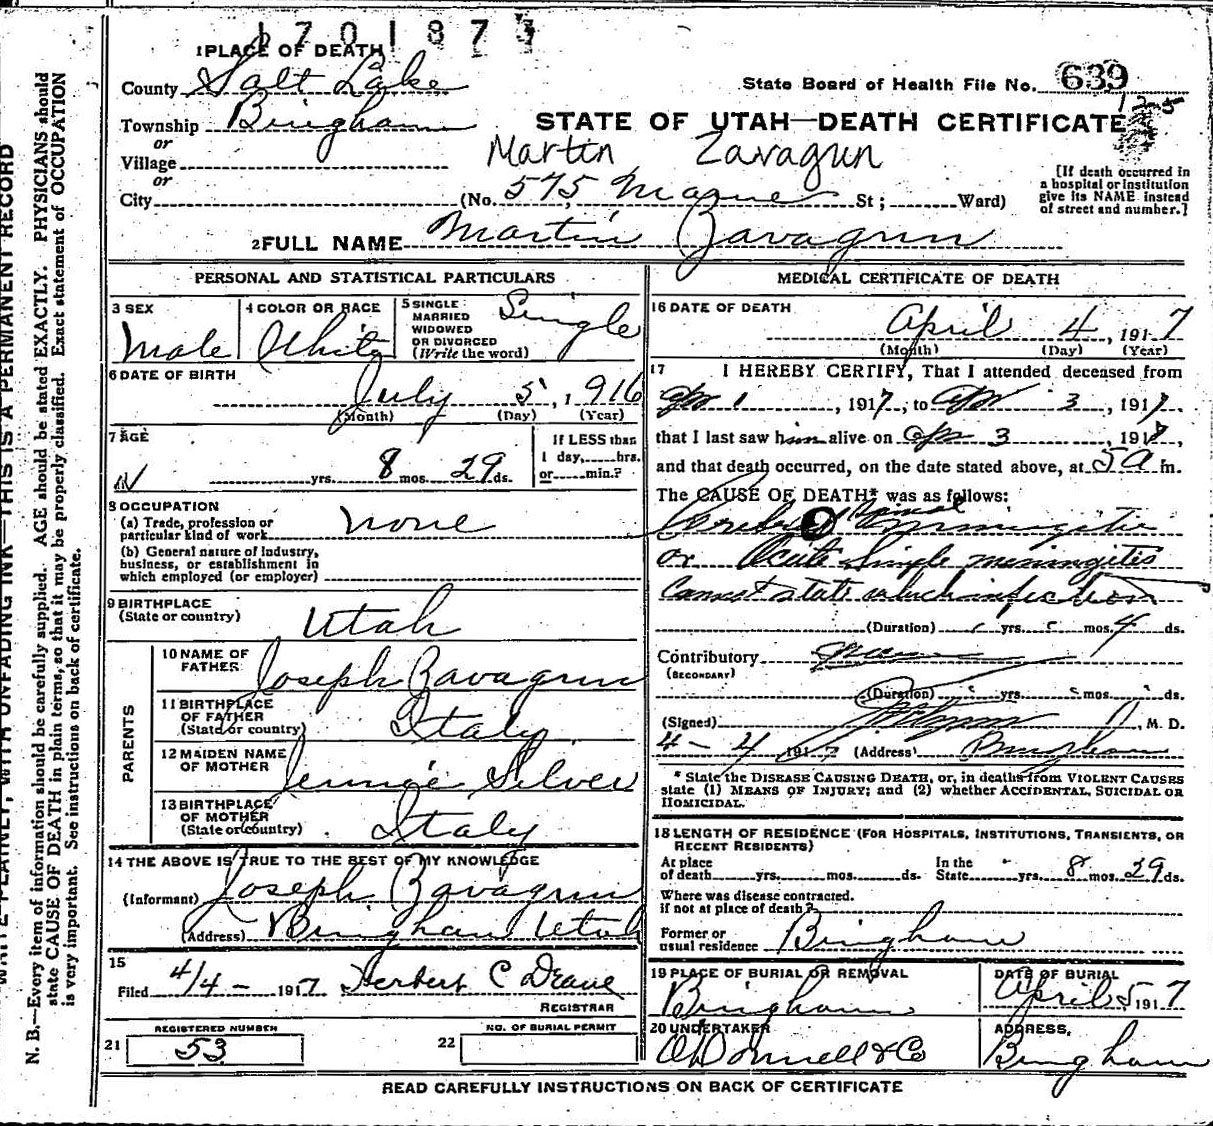 1701873
1 PLACE OF DEATH
County Salt Lake
State Board of Health File No. 639
Township Bingham
125
or
STATE OF UTAH—DEATH CERTIFICATE
Village
Martin Zavagun
or
City (No. 575 St; Ward)
[If death occurred in a hospital or institution give its NAME instead of street and number.]
2 FULL NAME Martin Zavagun
PERSONAL AND STATISTICAL PARTICULARS
3 SEX
Male
4 COLOR OR RACE
White
5 SINGLE
MARRIED
WIDOWED
OR DIVORCED
(Write the word)
Single
6 DATE OF BIRTH
July 5, 1916
(Month) (Day) (Year)
7 AGE
yrs. 8 mos. 29 ds.
If LESS than
1 day, hrs.
or min.?
8 OCCUPATION
(a) Trade, profession or
particular kind of work none
(b) General nature of industry,
business, or establishment in
which employed (or employer)
9 BIRTHPLACE
(State or country) Utah
PARENTS
10 NAME OF
FATHER Joseph Zavagun
11 BIRTHPLACE
OF FATHER
(State or country) Italy
12 MAIDEN NAME
OF MOTHER Jennie Silver
13 BIRTHPLACE
OF MOTHER
(State or country) Italy
14 THE ABOVE IS TRUE TO THE BEST OF MY KNOWLEDGE
(Informant) Joseph Zavagun
(Address) Bingham Utah
15
Filed 4/4 - 1917 Herbert C Deane
REGISTRAR
REGISTERED NUMBER
21 53
NO. OF BURIAL PERMIT
22
MEDICAL CERTIFICATE OF DEATH
16 DATE OF DEATH
April 4, 1917
(Month) (Day) (Year)
17 I HEREBY CERTIFY, That I attended deceased from
Apr 1, 1917, to Apr 3, 1917,
that I last saw him alive on Apr 3, 1917,
and that death occurred, on the date stated above, at 5 a m.
The CAUSE OF DEATH* was as follows:
Cerebro Spinal Meningitis
or Acute Simple meningitis
Cannot state which infection
(Duration) yrs. mos. 4 ds.
Contributory
(SECONDARY)
(Duration) yrs. mos. ds.
(Signed) M. D.
4 - 4 1917 (Address) Bingham
* State the DISEASE CAUSING DEATH, or, in deaths from VIOLENT CAUSES
state (1) MEANS OF INJURY; and (2) whether ACCIDENTAL, SUICIDAL OR
HOMICIDAL.
18 LENGTH OF RESIDENCE (FOR HOSPITALS, INSTITUTIONS, TRANSIENTS, OR
RECENT RESIDENTS)
At place
of death yrs. mos. ds.
In the
State yrs. 8 mos. 29 ds.
Where was disease contracted.
if not at place of death?
Former or
usual residence Bingham
19 PLACE OF BURIAL OR REMOVAL
Bingham
DATE OF BURIAL
April 5 1917
20 UNDERTAKER
O'Donnell & Co
ADDRESS.
Bingham
READ CAREFULLY INSTRUCTIONS ON BACK OF CERTIFICATE
WRITE PLAINLY, WITH UNFADING INK—THIS IS A PERMANENT RECORD
N. B.—Every item of information should be carefully supplied. AGE should be stated EXACTLY. PHYSICIANS should
state CAUSE OF DEATH in plain terms, so that it may be properly classified. Exact statement of OCCUPATION
is very important. See instructions on back of certificate.